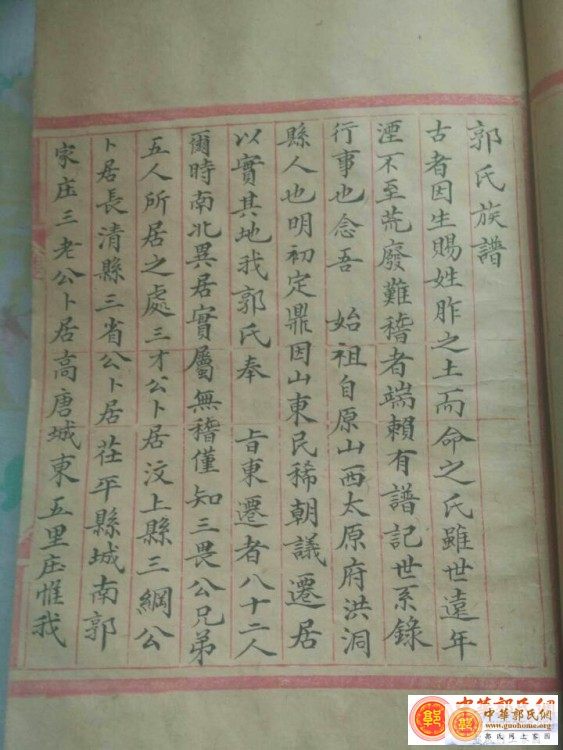 郭氏族譜
古者因生賜姓胙之土而命之氏雖世遠年
湮不至荒廢難稽者端賴有譜記世系錄
行事也念吾 始祖自原山西太原府洪洞
縣人也明初定鼎因山東民稀朝議遷居
以實其地我郭氏奉 旨東遷者八十二人
爾時南北異居實屬無稽僅知三畏公兄弟
五人所居之處三才公卜居汶上縣三綱公
卜居長清縣三省公卜居茌平縣城南郭
家庄三老公卜居高唐城東五里庄惟我
中華郭氏網
www.guohome.org
郭氏網上家園